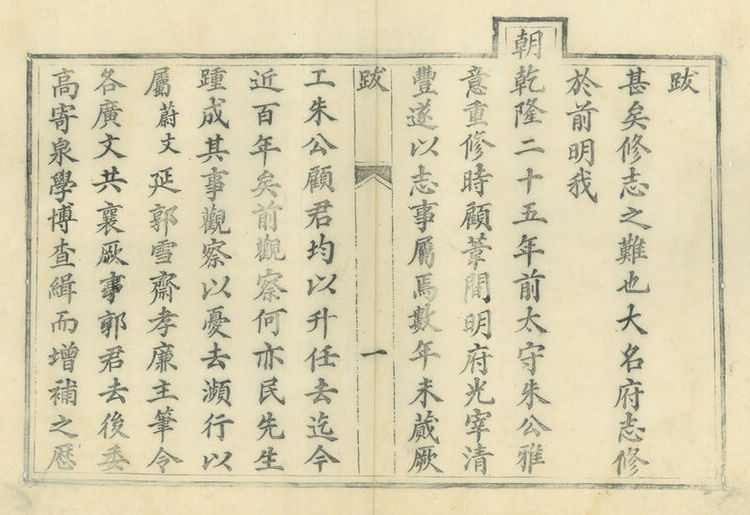 跋
甚矣修志之難也大名府志修
於前明我
朝乾隆二十五年前太守朱公雅
意重修時顧葦間明府光宰清
豐遂以志事屬焉數年未蕆厥
跋 一
工朱公顧君均以升任去迄今
近百年矣前觀察何亦民先生
踵成其事觀察以憂去瀕行以
屬蔚文延郭雪齋孝廉主筆令
各廣文共襄厥事郭君去後委
高寄泉學博查緝而增補之歷